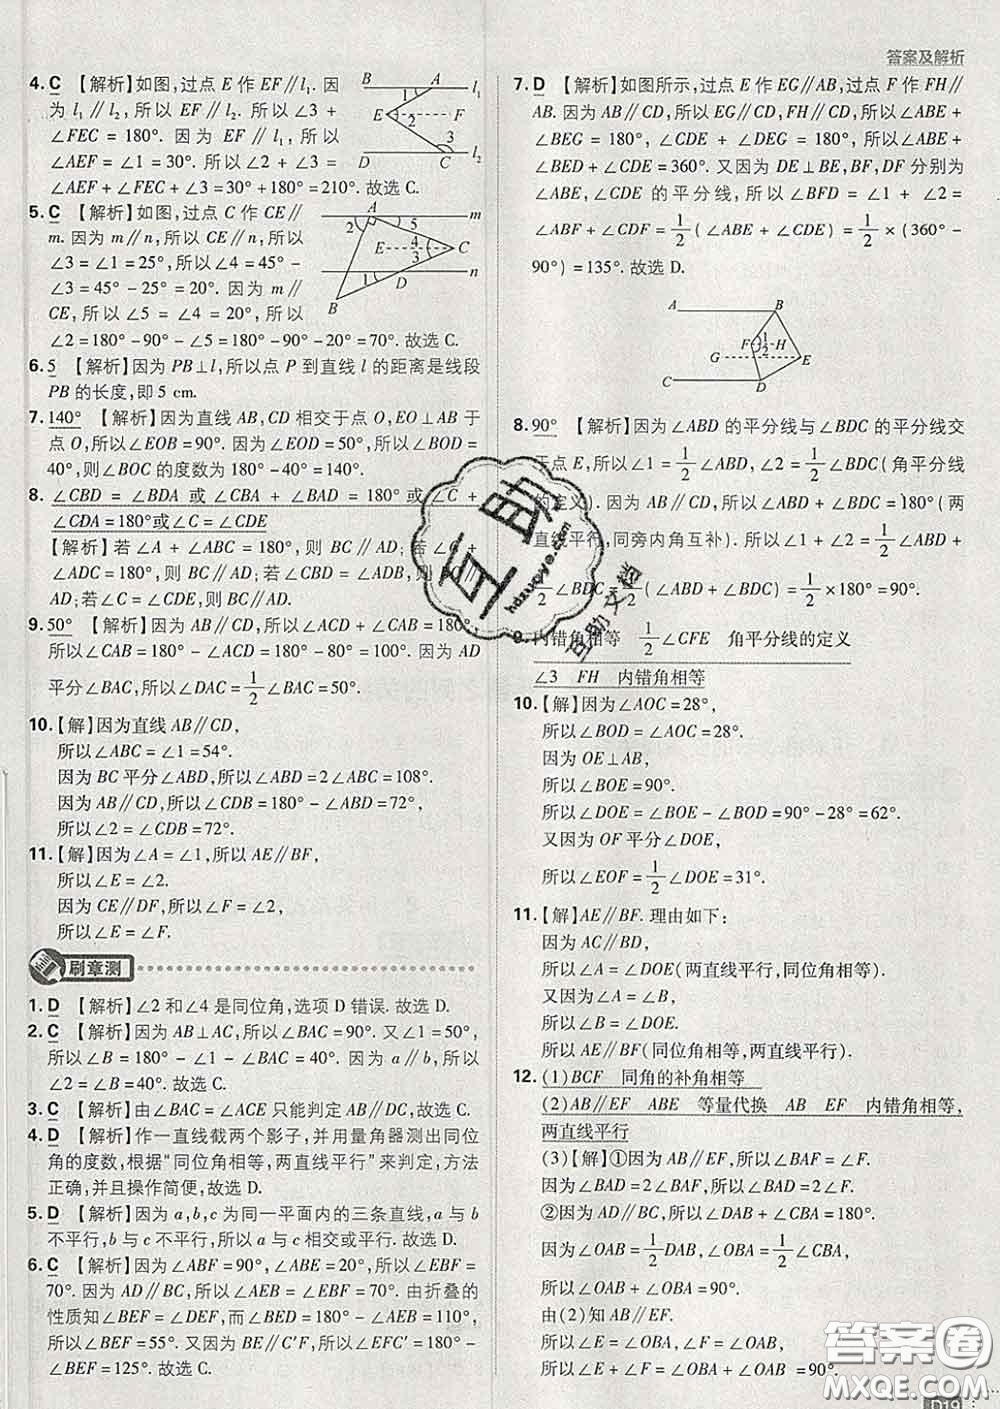 答案及解析
4. C 【解析】如图,过点 E 作 EF∥l₁. 因
为 l₁∥l₂,所以 EF∥l₂. 所以∠3 +
∠FEC = 180°. 因为 EF∥l₁,所以
∠AEF = ∠1 = 30°. 所以∠2 + ∠3 =
∠AEF + ∠FEC + ∠3 = 30° + 180° = 210°. 故选 C.
B A l₁
1
E 2 F
3
D C l₂
5. C 【解析】如图,过点 C 作 CE∥
m. 因为 m∥n,所以 CE∥n. 所以
∠3 = ∠1 = 25°,所以∠4 = 45° -
∠3 = 45° - 25° = 20°. 因为 m∥
CE,所以∠5 = ∠4 = 20°,所以
∠2 = 180° - 90° - ∠5 = 180° - 90° - 20° = 70°. 故选 C.
A m
2 5
E 4 C
3
1 D n
B
6. 5 【解析】因为 PB⊥l,所以点 P 到直线 l 的距离是线段
PB 的长度,即 5 cm.
7. 140° 【解析】因为直线 AB,CD 相交于点 O,EO⊥AB 于
点 O,所以∠EOB = 90°. 因为∠EOD = 50°,所以∠BOD =
40°,则∠BOC 的度数为 180° - 40° = 140°.
8. ∠CBD = ∠BDA 或∠CBA + ∠BAD = 180°或∠C +
∠CDA = 180°或∠C = ∠CDE
【解析】若∠A + ∠ABC = 180°,则 BC∥AD;若∠C +
∠ADC = 180°,则 BC∥AD;若∠CBD = ∠ADB,则 BC∥
AD;若∠C = ∠CDE,则 BC∥AD.
9. 50° 【解析】因为 AB∥CD,所以∠ACD + ∠CAB = 180°,
所以∠CAB = 180° - ∠ACD = 180° - 80° = 100°. 因为 AD
平分∠BAC,所以∠DAC = 1/2∠BAC = 50°.
10. 【解】因为直线 AB∥CD,
所以∠ABC = ∠1 = 54°.
因为 BC 平分∠ABD,所以∠ABD = 2∠ABC = 108°.
因为 AB∥CD,所以∠CDB = 180° - ∠ABD = 72°,
所以∠2 = ∠CDB = 72°.
11. 【解】因为∠A = ∠1,所以 AE∥BF,
所以∠E = ∠2.
因为 CE∥DF,所以∠F = ∠2,
所以∠E = ∠F.
刷章测
1. D 【解析】∠2 和∠4 是同位角,选项 D 错误. 故选 D.
2. C 【解析】因为 AB⊥AC,所以∠BAC = 90°. 又∠1 = 50°,
所以∠B = 180° - ∠1 - ∠BAC = 40°. 因为 a∥b,所以
∠2 = ∠B = 40°. 故选 C.
3. C 【解析】由∠BAC = ∠ACE 只能判定 AB∥DC,故选 C.
4. D 【解析】作一直线截两个影子,并用量角器测出同位
角的度数,根据“同位角相等,两直线平行”来判定,方法
正确,并且操作简便,故选 D.
5. D 【解析】因为 a,b,c 为同一平面内的三条直线,a 与 b
不平行,b 与 c 不平行,所以 a 与 c 相交或平行. 故选 D.
6. C 【解析】因为∠ABF = 90°,∠ABE = 20°,所以∠EBF =
70°. 因为 AD∥BC,所以∠AEB = ∠EBF = 70°. 由折叠的
性质知∠BEF = ∠DEF,而∠BED = 180° - ∠AEB = 110°,
所以∠BEF = 55°. 又因为 BE∥C′F,所以∠EFC′ = 180° -
∠BEF = 125°. 故选 C.
7. D 【解析】如图所示,过点 E 作 EG∥AB,过点 F 作 FH∥
AB. 因为 AB∥CD,所以 EG∥CD,FH∥CD,所以∠ABE +
∠BEG = 180°,∠CDE + ∠DEG = 180°,所以∠ABE +
∠BED + ∠CDE = 360°. 又因为 DE⊥BE,BF,DF 分别为
∠ABE,∠CDE 的平分线,所以∠BFD = ∠1 + ∠2 =
∠ABF + ∠CDF = 1/2(∠ABE + ∠CDE) = 1/2 × (360° -
90°) = 135°. 故选 D.
A B
F 1 H
2
G E
C D
8. 90° 【解析】因为∠ABD 的平分线与∠BDC 的平分线交
于点 E,所以∠1 = 1/2∠ABD,∠2 = 1/2∠BDC(角平分线
的定义). 因为 AB∥CD,所以∠ABD + ∠BDC = 180°(两
直线平行,同旁内角互补). 所以∠1 + ∠2 = 1/2∠ABD +
1/2∠BDC = 1/2(∠ABD + ∠BDC) = 1/2 × 180° = 90°.
9. 内错角相等 1/2∠CFE 角平分线的定义
∠3 FH 内错角相等
10. 【解】因为∠AOC = 28°,
所以∠BOD = ∠AOC = 28°.
因为 OE⊥AB,
所以∠BOE = 90°.
所以∠DOE = ∠BOE - ∠BOD = 90° - 28° = 62°.
又因为 OF 平分∠DOE,
所以∠EOF = 1/2∠DOE = 31°.
11. 【解】AE∥BF. 理由如下:
因为 AC∥BD,
所以∠A = ∠DOE(两直线平行,同位角相等).
又因为∠A = ∠B,
所以∠B = ∠DOE.
所以 AE∥BF(同位角相等,两直线平行).
12. (1)BCF 同角的补角相等
(2)AB∥EF ABE 等量代换 AB EF 内错角相等,
两直线平行
(3)【解】①因为 AB∥EF,所以∠BAF = ∠F.
所以∠BAD = 2∠BAF,所以∠BAD = 2∠F.
②因为 AD∥BC,所以∠DAB + ∠CBA = 180°.
因为∠OAB = 1/2DAB,∠OBA = 1/2∠CBA,
所以∠OAB + ∠OBA = 90°.
由(2)知 AB∥EF.
所以∠E = ∠OBA,∠F = ∠OAB,
所以∠E + ∠F = ∠OBA + ∠OAB = 90°.
互助
hdzuoye.com
互助文档
答案圈
MXQE.COM
D19